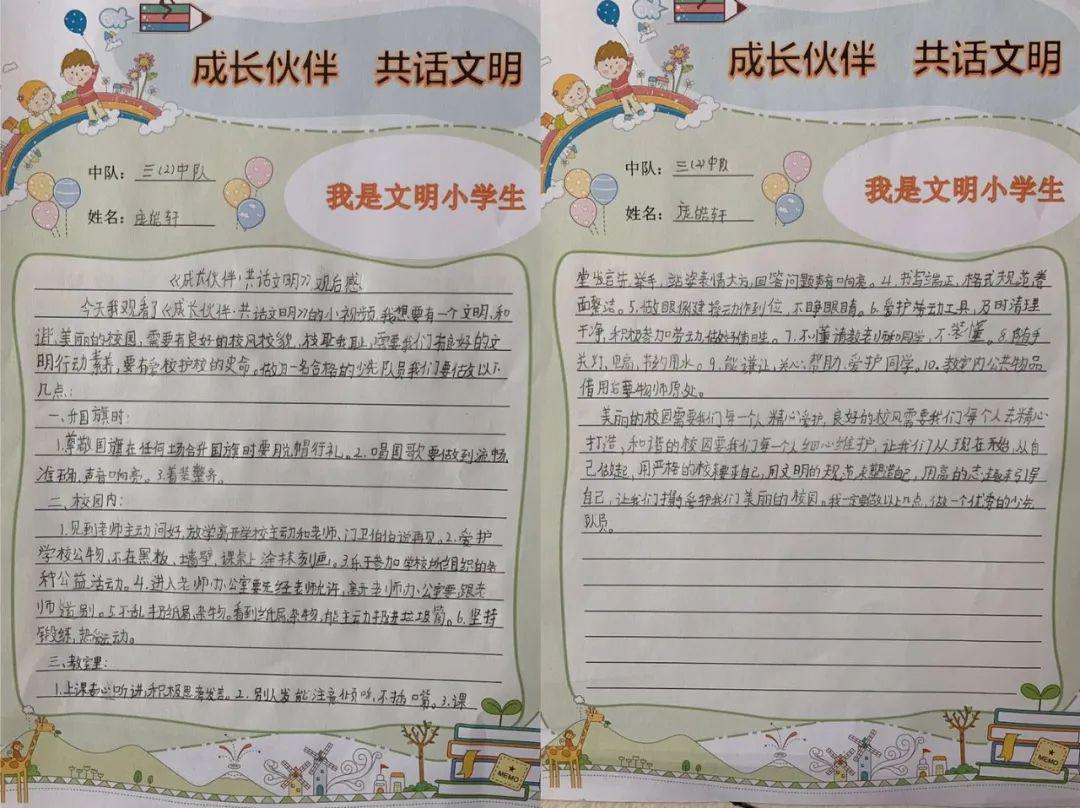 成长伙伴 共话文明
中队：三(2)中队
姓名：庞皓轩
我是文明小学生
《成长伙伴·共话文明》观后感
今天我观看了《成长伙伴·共话文明》的小视频,我想要有一个文明,和
谐,美丽的校园,需要有良好的校风校貌,校耻我耻,需要我们有良好的文
明行动素养,要有爱校护校的史命。做为一名合格的少先队员我们要做以下
几点:
一、升国旗时:
1.尊敬国旗在任何场合升国旗时要脱帽行礼。2.唱国歌要做到流畅
准确,声音响亮。3.着装整齐。
二、校园内:
1.见到老师主动问好,放学离开学校主动和老师、门卫伯伯说再见。2.爱护
学校公物,不在黑板、墙壁,课桌上涂抹刻画。3.乐于参加学校组织的各
种公益活动。4.进入老师办公室要先经老师允许,离开老师办公室要跟老
师道别。5.不乱扔纸屑,杂物。看到纸屑,杂物,能主动扔进垃圾筒。6.坚持
锻练,热爱运动。
三、教室里:
1.上课专心听讲,积极思考发言。2.别人发能注意倾听,不插嘴。3.课
MEMO
成长伙伴 共话文明
中队：三(2)中队
姓名：庞皓轩
我是文明小学生
堂发言先举手,站姿亲情大方,回答问题声音响亮。4.书写端正,格式规范卷
面整洁。5.做眼保健操动作到位,不睁眼睛。6.爱护劳动工具,及时清理
干净,积极参加劳动,做好值日生。7.不懂请教老师和同学,不装懂。8.随手
关灯、电扇,节约用水。9.能谦让,关心,帮助、爱护同学。10.教室内公共物品
借用后要物归原处。
美丽的校园需要我们每一个人精心爱护,良好的校风需要我们每个人去精心
打造、和谐的校园要我们每一个人细心维护,让我们从现在开始,从自
己做起,用严格的校规来要求自己,用文明的规范来塑造自己,用高的志趣来引导
自己,让我们携手爱护我们美丽的校园。我一定要做以上几点,做一个优秀的少先
队员。
MEMO